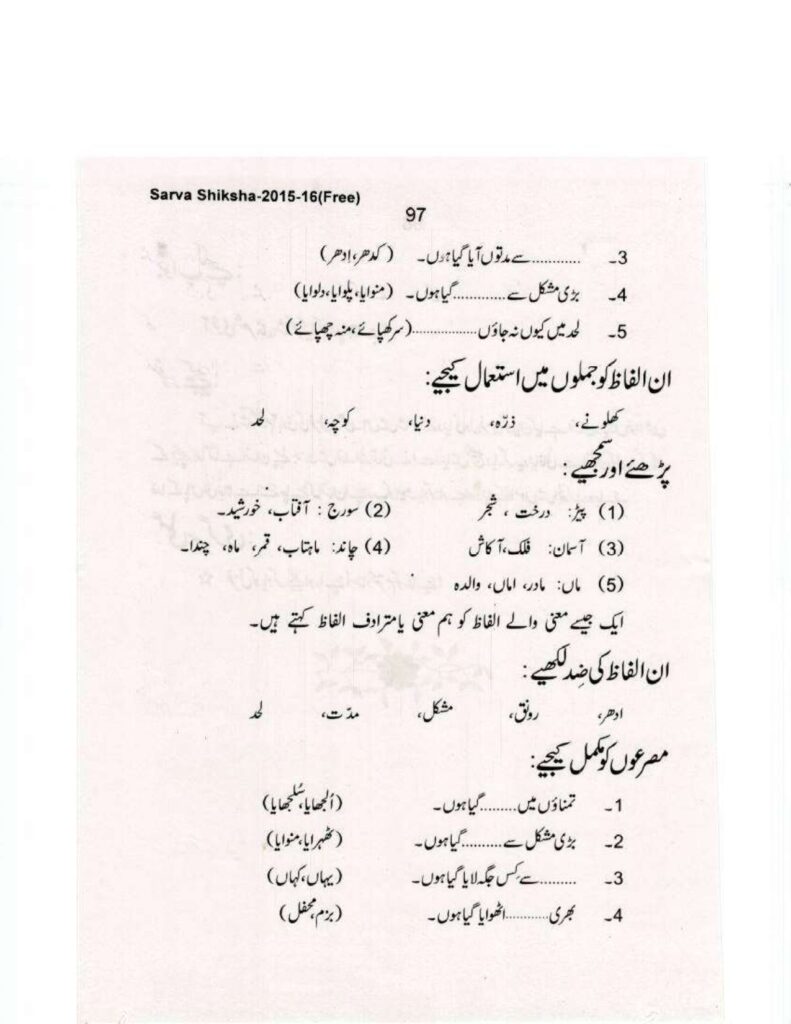 Sarva Shiksha-2015-16(Free)
97
3۔ ............ سے مدتوں آیا گیا ہوں۔ (کدھر، اِدھر)
4۔ بڑی مشکل سے ............ گیا ہوں۔ (منوایا، پلوایا، دلوایا)
5۔ لحد میں کیوں نہ جاؤں ............... (سر کھپائے، منہ چھپائے)
ان الفاظ کو جملوں میں استعمال کیجیے:
کھلونے، ذرّہ، دنیا، کوچہ، لحد
پڑھئے اور سمجھیے:
(1) پیڑ: درخت ، شجر (2) سورج : آفتاب، خورشید۔
(3) آسمان: فلک، آکاش (4) چاند: ماہتاب، قمر، ماہ، چندا۔
(5) ماں: مادر، اماں، والدہ
ایک جیسے معنی والے الفاظ کو ہم معنی یا مترادف الفاظ کہتے ہیں۔
ان الفاظ کی ضِد لکھیے:
ادھر، رونق، مشکل، مدّت، لحد
مصرعوں کو مکمل کیجیے:
1۔ تمناؤں میں ......... گیا ہوں۔ (اُلجھایا، سُلجھایا)
2۔ بڑی مشکل سے .......... گیا ہوں۔ (ٹھہرایا، منوایا)
3۔ ......... سے کِس جگہ لایا گیا ہوں۔ (یہاں، کہاں)
4۔ بھری ........... اٹھوایا گیا ہوں۔ (بزم، محفل)